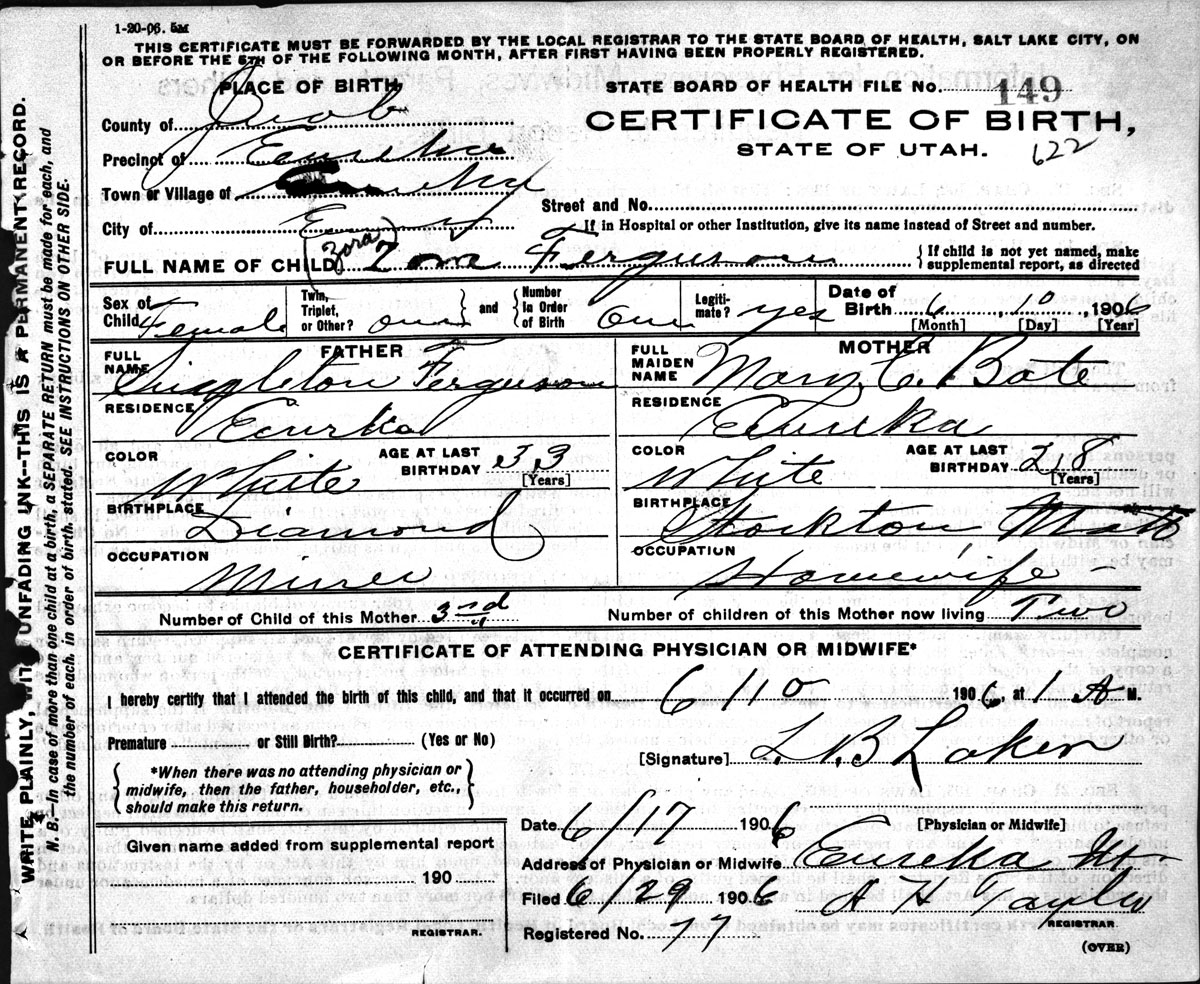 1-20-06. 5M
THIS CERTIFICATE MUST BE FORWARDED BY THE LOCAL REGISTRAR TO THE STATE BOARD OF HEALTH, SALT LAKE CITY, ON
OR BEFORE THE 5TH OF THE FOLLOWING MONTH, AFTER FIRST HAVING BEEN PROPERLY REGISTERED.
PLACE OF BIRTH
STATE BOARD OF HEALTH FILE No. 149
County of Juab
CERTIFICATE OF BIRTH,
STATE OF UTAH. 622
Precinct of Eureka
Town or Village of
Street and No.
City of
If in Hospital or other Institution, give its name instead of Street and number.
FULL NAME OF CHILD (Zora) Zora Ferguson {If child is not yet named, make supplemental report, as directed
Sex of Child Female
Twin, Triplet, or Other? one and {Number In Order of Birth one
Legitimate? yes
Date of Birth 6, 10, 1906
[Month] [Day] [Year]
FATHER
FULL NAME Singleton Ferguson
RESIDENCE Eureka
COLOR White
AGE AT LAST BIRTHDAY 33 [Years]
BIRTHPLACE Diamond
OCCUPATION Miner
MOTHER
FULL MAIDEN NAME Mary C. Bate
RESIDENCE Eureka
COLOR White
AGE AT LAST BIRTHDAY 28 [Years]
BIRTHPLACE Stockton
OCCUPATION Housewife
Number of Child of this Mother 3rd
Number of children of this Mother now living Two
CERTIFICATE OF ATTENDING PHYSICIAN OR MIDWIFE*
I hereby certify that I attended the birth of this child, and that it occurred on 6/10 1906 at 1 A M.
Premature or Still Birth? (Yes or No)
[Signature] L. B. Laker
{*When there was no attending physician or
midwife, then the father, householder, etc.,
should make this return.}
Date 6/17 1906 [Physician or Midwife]
Given name added from supplemental report
190
REGISTRAR.
Address of Physician or Midwife Eureka Ut
Filed 6/29 1906 A H Taylor
REGISTRAR
Registered No. 77
(OVER)
WRITE PLAINLY, WITH UNFADING INK--THIS IS A PERMANENT RECORD.
N. B.—In case of more than one child at a birth, a SEPARATE RETURN must be made for each, and
the number of each, in order of birth, stated. SEE INSTRUCTIONS ON OTHER SIDE.